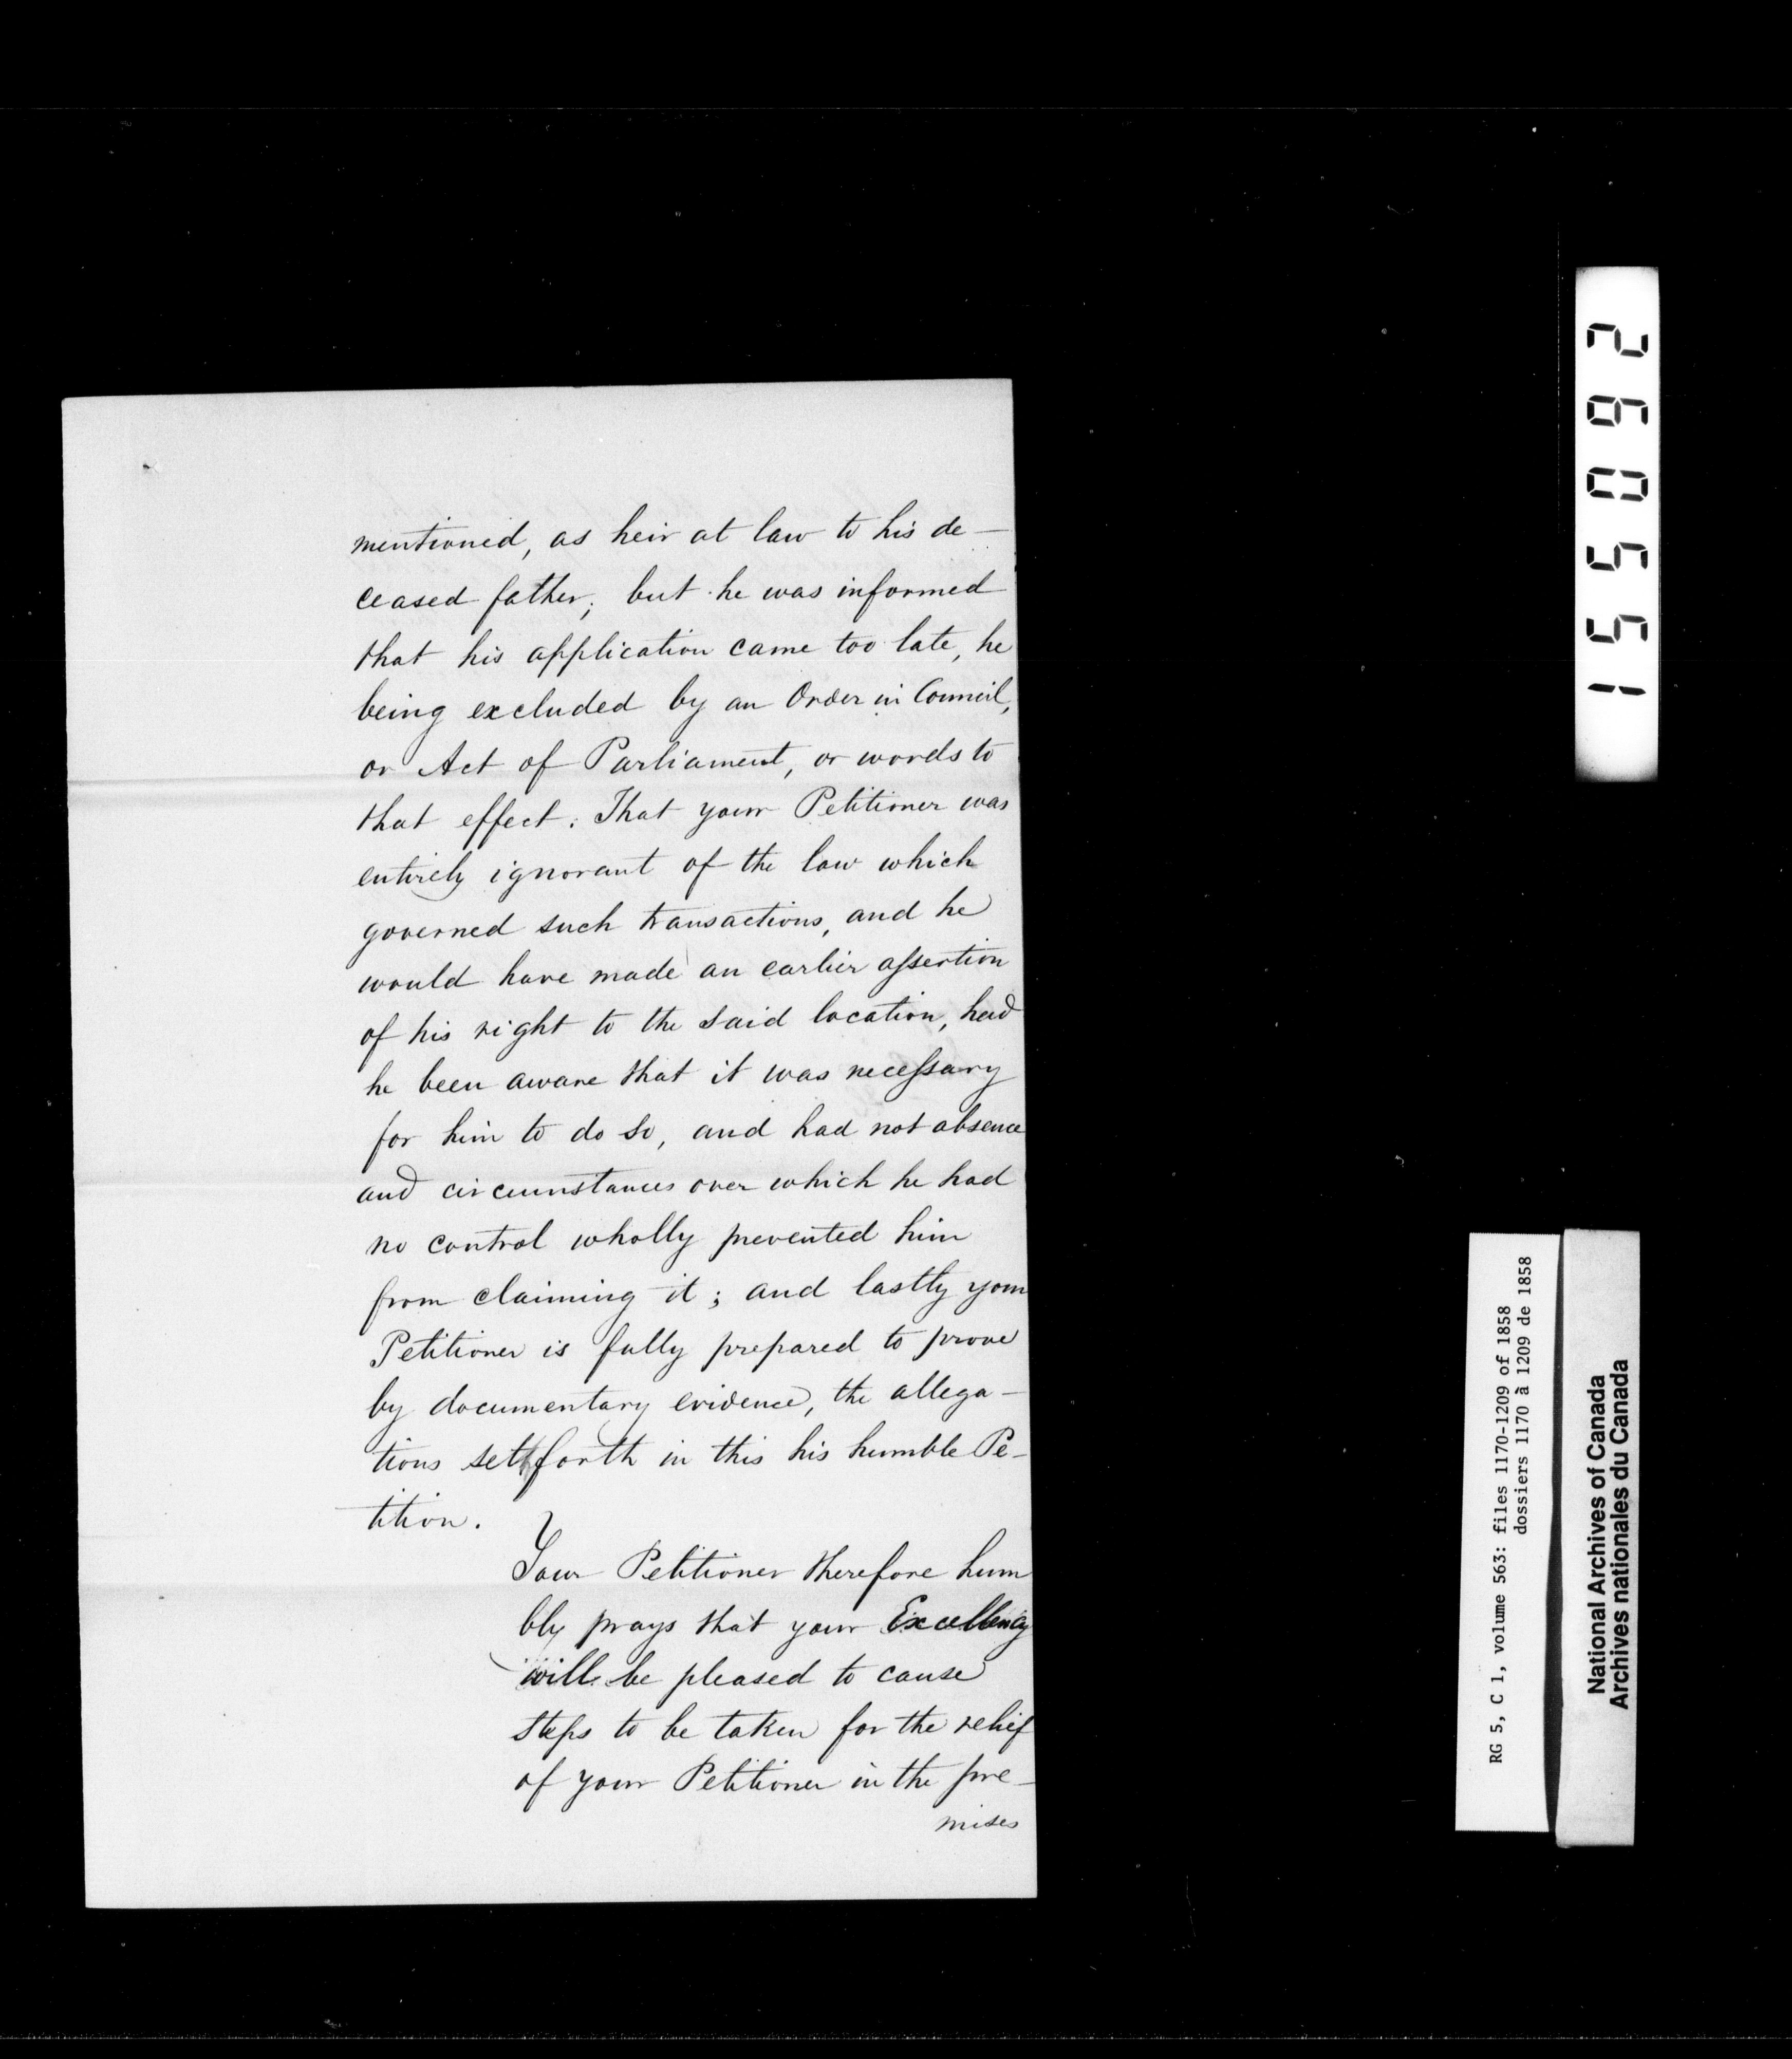 mentioned, as heir at law to his de-
ceased father; but he was informed
that his application came too late, he
being excluded by an Order in Council,
or Act of Parliament, or words to
that effect. That your Petitioner was
entirely ignorant of the law which
governed such transactions, and he
would have made an earlier assertion
of his right to the said location, had
he been aware that it was necessary
for him to do so, and had not absence
and circumstances over which he had
no control wholly prevented him
from claiming it; and lastly your
Petitioner is fully prepared to prove
by documentary evidence, the allega-
tions set forth in this his humble Pe-
tition.
Your Petitioner therefore hum
bly prays that your Excellency
will be pleased to cause
steps to be taken for the relief
of your Petitioner in the pre-
mises
155092
RG 5, C 1, volume 563: files 1170-1209 of 1858
dossiers 1170 à 1209 de 1858
National Archives of Canada
Archives nationales du Canada